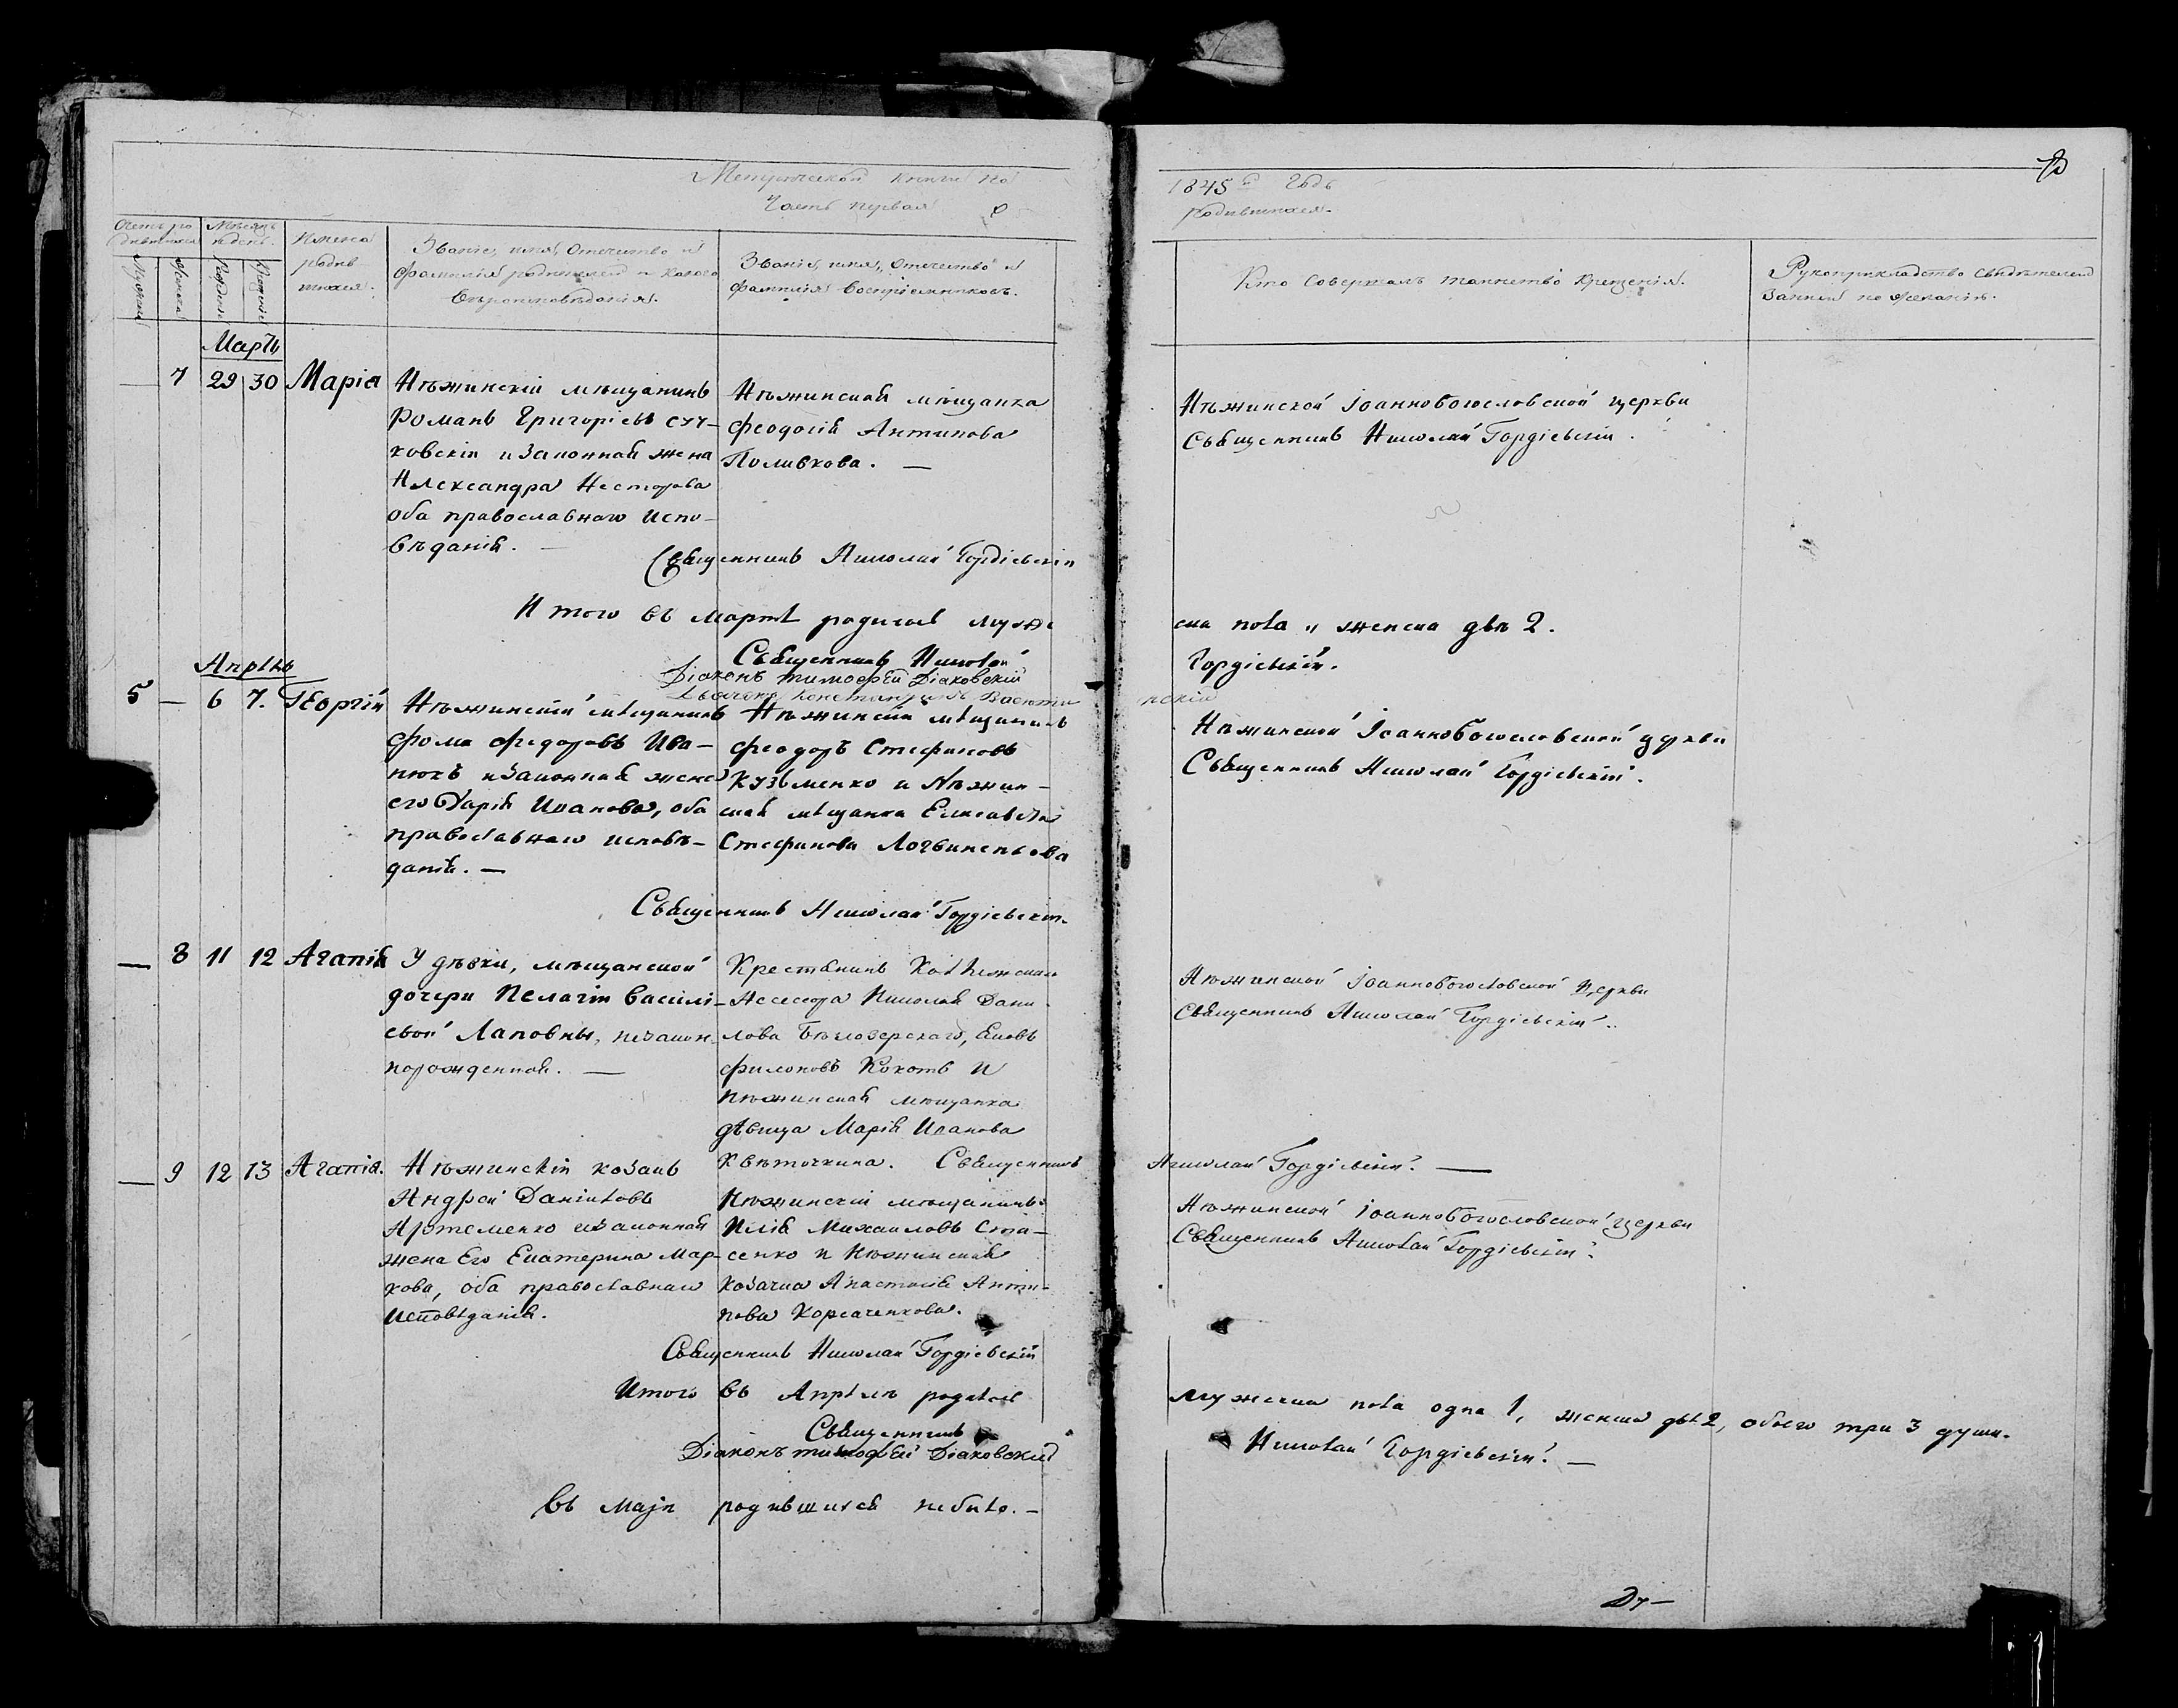 Метрической книги на
Часть первая
1845й Годъ
родившихся.
Счетъ ро
дившихся
Мѣсяцъ
и день.
Имена
родив-
шихся.
Званіе, имя, Отечество и
фамилія родителей и какого
вѣроисповѣданія.
Званіе, имя, Отечество и
фамилія воспріемниковъ.
Кто Совершалъ таинство Крещенія.
Рукоприкладство Свидѣтелей
записи по желанію.
Мартъ
7 29 30 Марія
Нѣжинскій мѣщанинъ
Романъ Григоріевъ Суч-
ковскій и Законная жена
Александра Несторова
оба православнаго Испо-
вѣданія. —
Нѣжинская мѣщанка
Феодосія Антипова
Поливкова. —
Нѣжинской Іоаннобогословской церкви
Священникъ Николай Гордіевскій.
Священникъ Николай Гордіевскій
И того въ мартѣ родилось муже
ска пола „ женска двѣ 2.
Священникъ Николай
Гордіевскій.
Діаконъ тимофей Діаковскій
Апрѣль
5 — 6 7. Георгій
Нѣжинскій мѣщанинъ
Фома Федоровъ Ива-
нюкъ и Законная жена
его Дарія Иванова, оба
православнаго исповѣ-
данія. —
Нѣжинскій мѣщанинъ
Феодоръ Стефановъ
Кузьменко и Нѣжин-
ская мѣщанка Елисавета
Стефанова Логвиненкова
Нѣжинской Іоаннобогословской церкви
Священникъ Николай Гордіевскій.
Священникъ Николай Гордіевскій.
— 8 11 12 Агапія
У дѣвки, мѣщанской
дочери Пелагіи Василі-
евой Лаповны, незакон-
норожденная. —
Крестянинъ Коллежскаго
Ассесора Николая Дани
лова Бѣлозерскаго,
Филоновъ Кохоть и
Нѣжинская мѣщанка
дѣвица Марія Иванова
Квѣточкина. Священникъ
Нѣжинской Іоаннобогословской Церкви
Священникъ Николай Гордіевскій.
Николай Гордіевскій. —
— 9 12 13 Агапія.
Нѣжинскій козакъ
Андрей Даніиловъ
Артеменко и Законная
жена Его Екатерина Мар-
кова, оба православнаго
Исповѣданія.
Нѣжинскій мѣщанинъ
Илія Михаиловъ Ста-
сенко и Нѣжинская
козачка Анастасія Анти-
пова Корсаченкова.
Нѣжинской Іоаннобогословской церкви
Священникъ Николай Гордіевскій.
Священникъ Николай Гордіевскій
Итого въ Апрѣлѣ родилось
Мужеска пола одна 1, женска двѣ 2, обоего три 3 души.
Священникъ
Николай Гордіевскій. —
Діаконъ тимофей Діаковскій
Въ Маѣ родившихся небыло. —